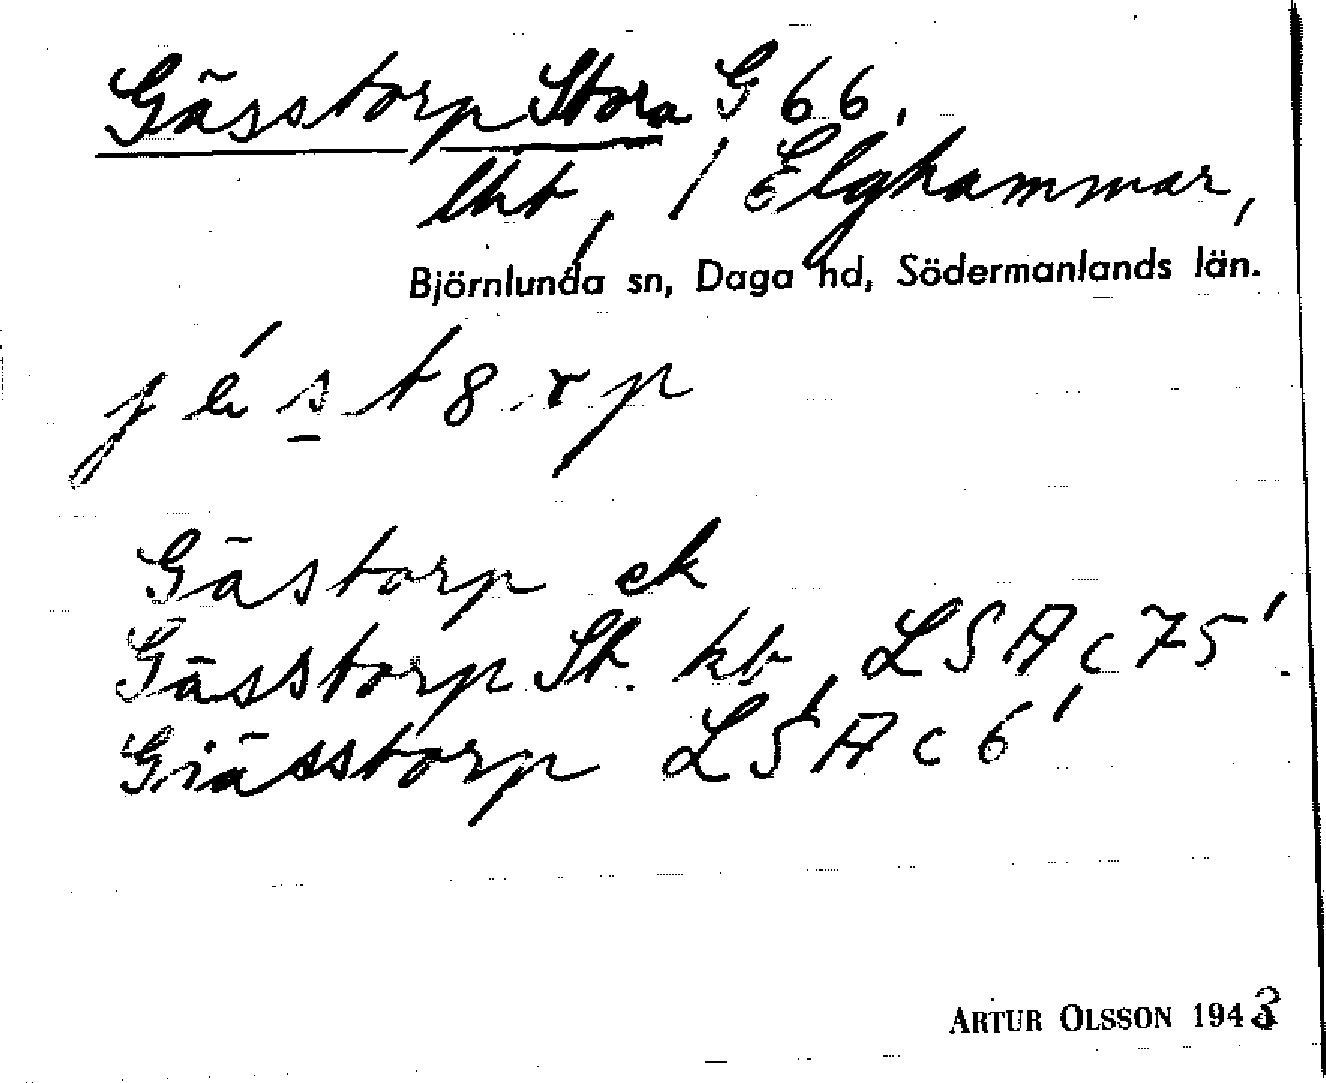 Gässtorp Stora G 66.
lht, / Elghammar,
Björnlunda sn, Daga hd, Södermanlands län.
Gästorp ek
Gässtorp St. kb, LSA c 75'
Giässtorp LSA c 6'
ARTUR OLSSON 1943